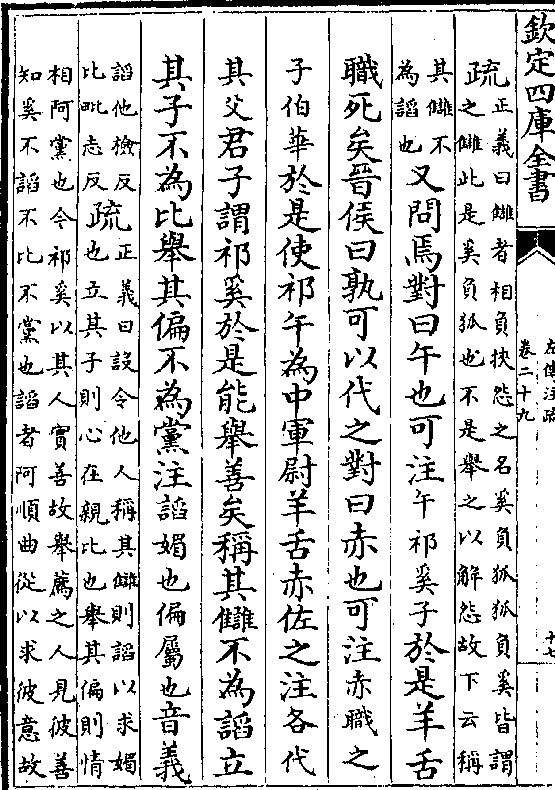 欽定四庫全書
左傳注疏
卷二十九
十七
疏
正義曰讎者相負挾怨之名奚負狐狐負奚皆謂
之讎此是奚負狐也不是舉之以解怨故下云稱
其讎不
為謟也
又問焉對曰午也可注午祁奚子於是羊舌
職死矣晉侯曰孰可以代之對曰赤也可注赤職之
子伯華於是使祁午為中軍尉羊舌赤佐之注各代
其父君子謂祁奚於是能舉善矣稱其讎不為謟立
其子不為比舉其偏不為黨注謟媚也偏屬也音義
謟他檢反
比毗志反
疏
正義曰設令他人稱其讎則謟以求媚
也立其子則心在親比也舉其偏則情
相阿黨也令祁奚以其人實善故舉薦之人見彼善
知奚不謟不比不黨也謟者阿順曲從以求彼意故